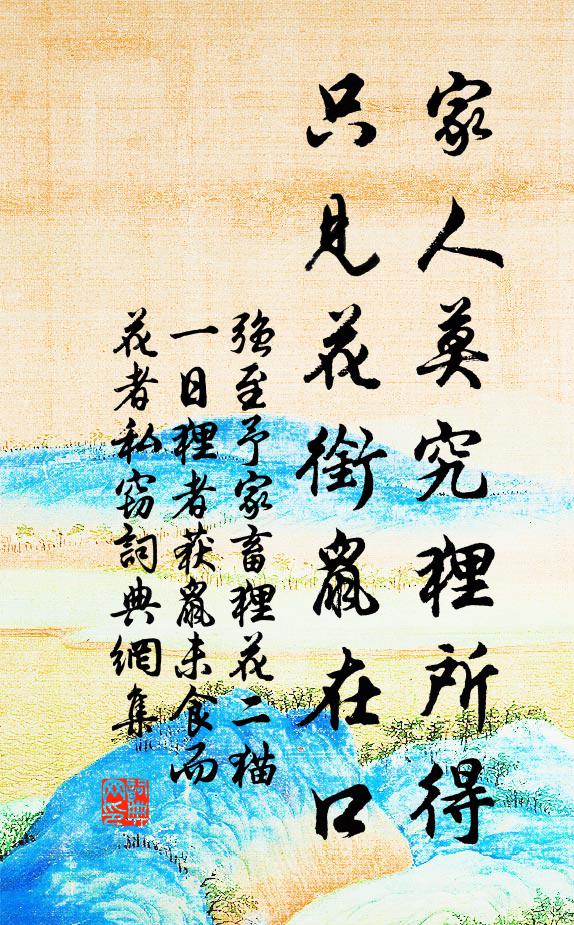 家人莫究狸所得
只見花銜鼠在口
強至予家畜狸花二猫
一日狸者获鼠未食而
花者私窃詞典網集